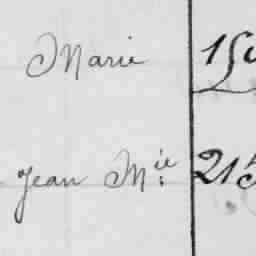 Marie 15
Jean M.ie 215